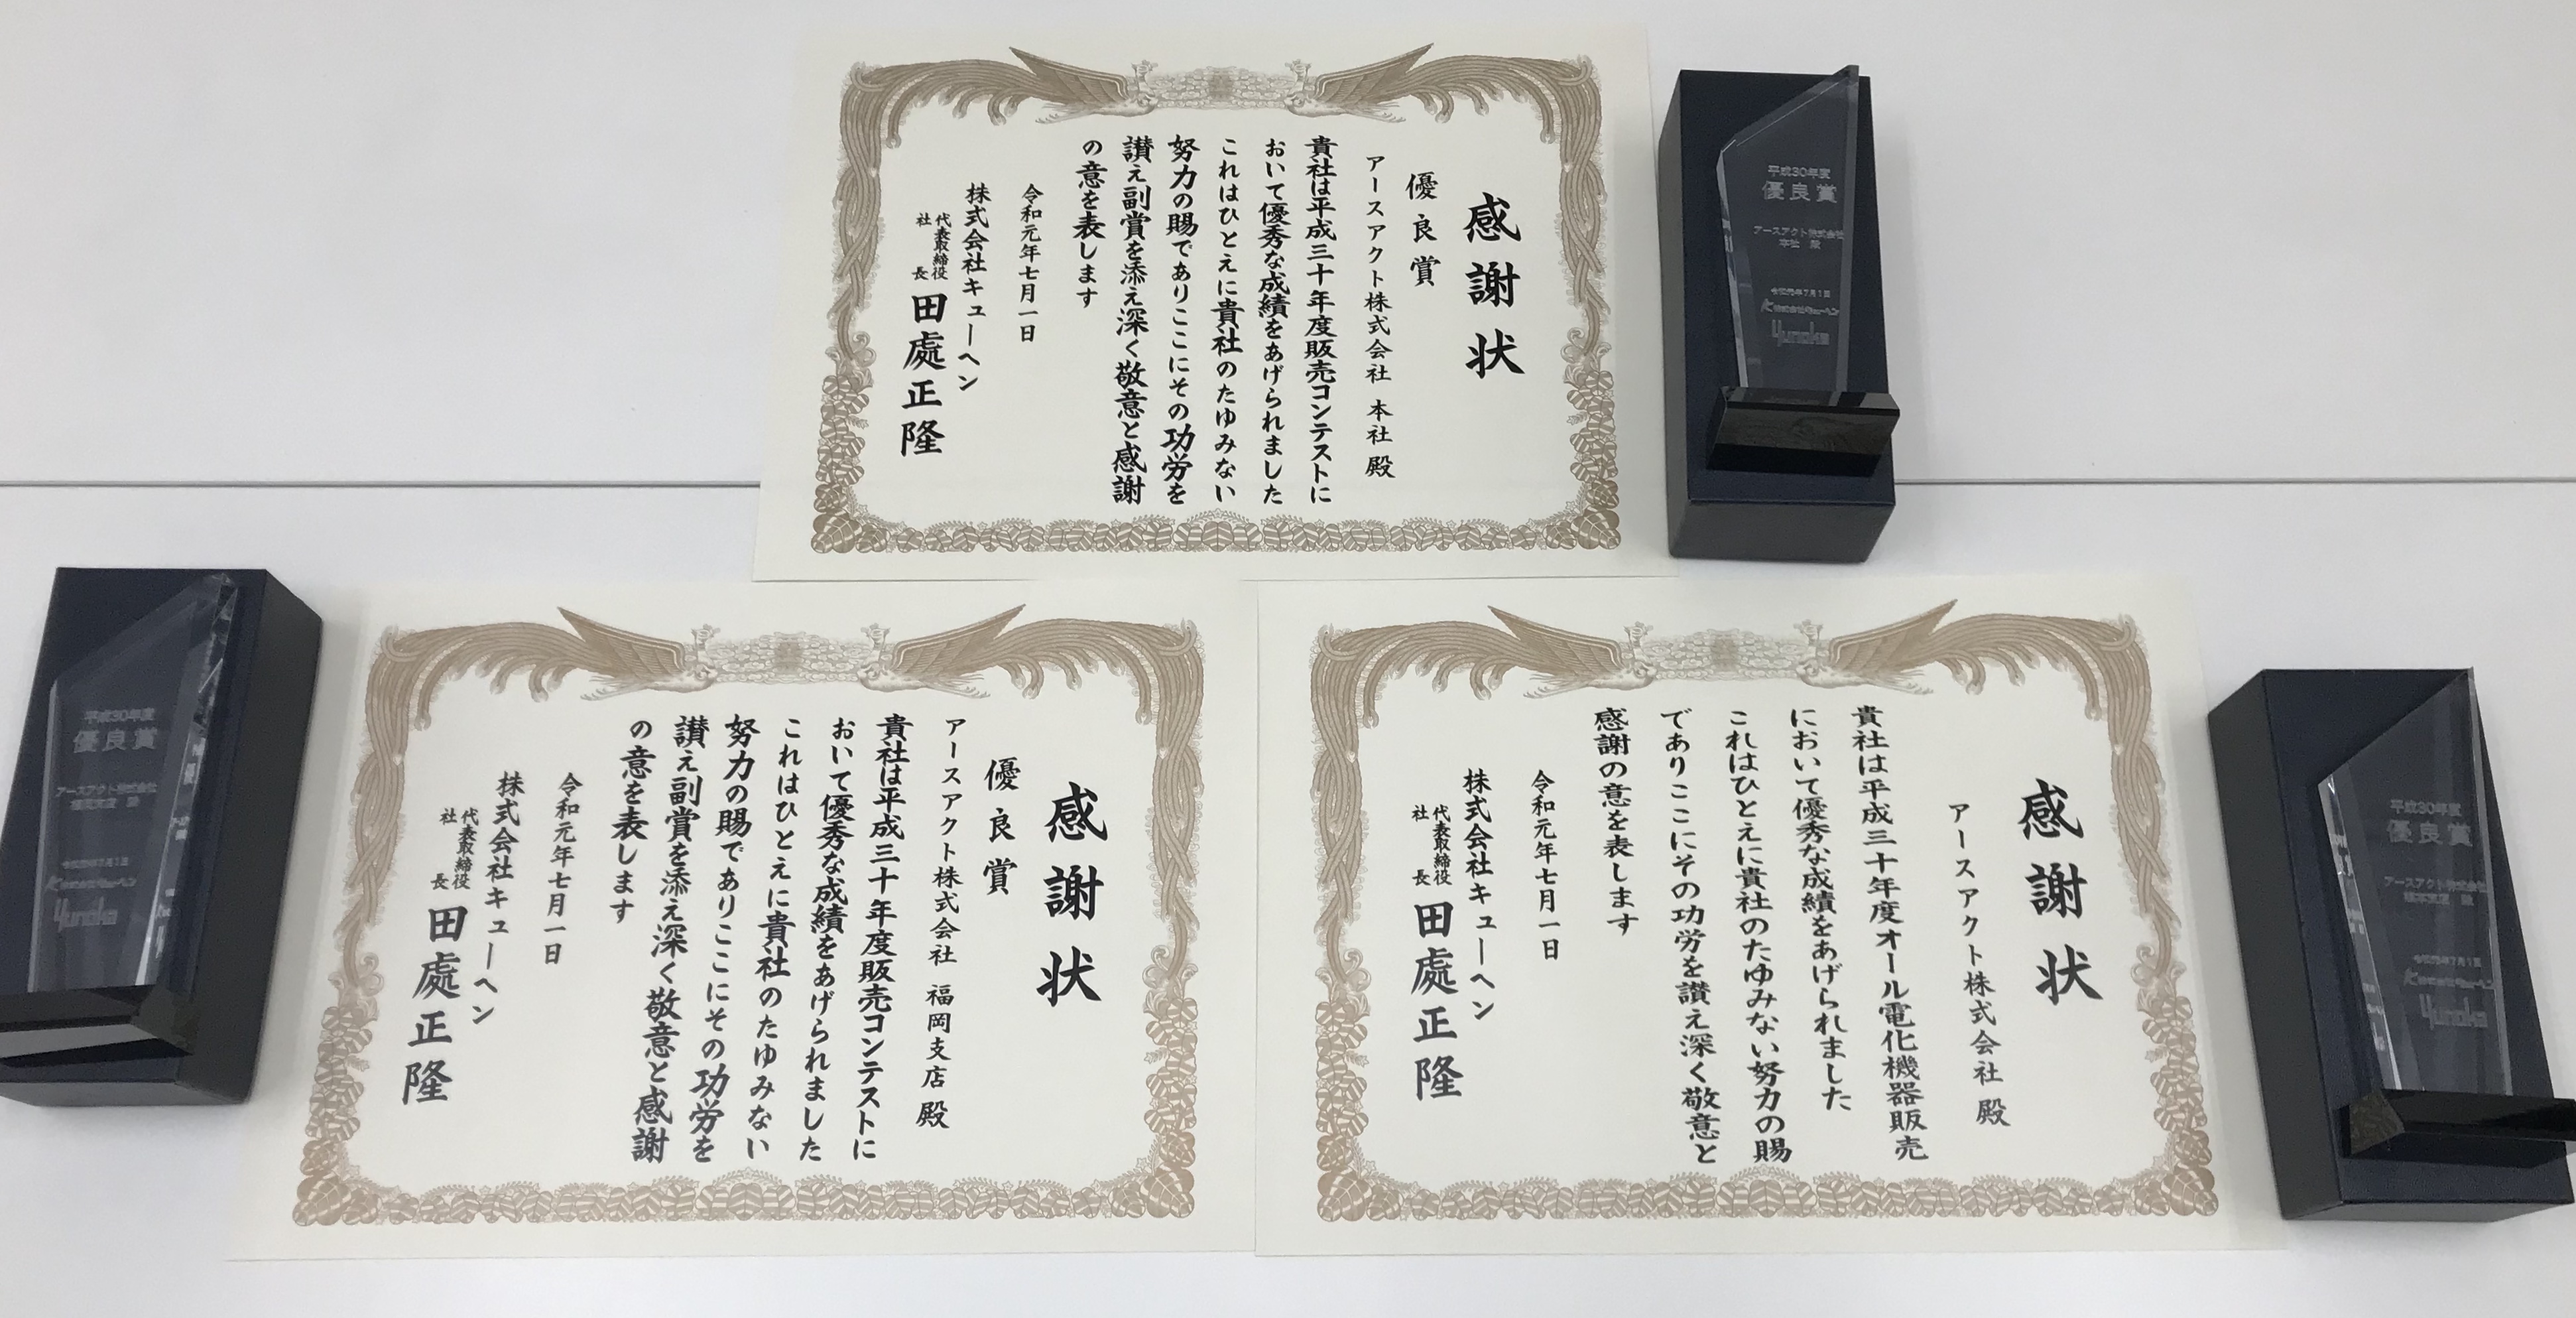 感謝状
優良賞
アースアクト株式会社 本社 殿
貴社は平成三十年度販売コンテストに
おいて優秀な成績をあげられました
これはひとえに貴社のたゆみない
努力の賜でありここにその功労を
讃え副賞を添え深く敬意と感謝
の意を表します
令和元年七月一日
株式会社キューヘン
代表取締役
社長
田處正隆
平成30年度
優良賞
アースアクト株式会社
本社 殿
令和元年7月1日
株式会社キューヘン
Yunoka
平成30年度
優良賞
アースアクト株式会社
福岡支店 殿
令和元年7月1日
株式会社キューヘン
Yunoka
感謝状
優良賞
アースアクト株式会社 福岡支店 殿
貴社は平成三十年度販売コンテストに
おいて優秀な成績をあげられました
これはひとえに貴社のたゆみない
努力の賜でありここにその功労を
讃え副賞を添え深く敬意と感謝
の意を表します
令和元年七月一日
株式会社キューヘン
代表取締役
社長
田處正隆
感謝状
アースアクト株式会社 殿
貴社は平成三十年度オール電化機器販売
において優秀な成績をあげられました
これはひとえに貴社のたゆみない努力の賜
でありここにその功労を讃え深く敬意と
感謝の意を表します
令和元年七月一日
株式会社キューヘン
代表取締役
社長
田處正隆
平成30年度
優良賞
アースアクト株式会社
熊本支店 殿
令和元年7月1日
株式会社キューヘン
Yunoka